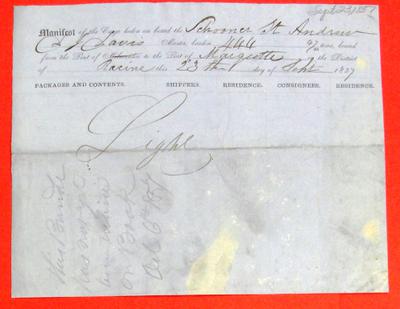 Sept 23/57
Manifest of the Cargo laden on board the Schooner St. Andrew
Davis Master, burden 444 tons, bound
from the Port of Milwaukee to the Port of Marquette in the District
of Racine this 23th day of Sept 1857
PACKAGES AND CONTENTS. SHIPPERS. RESIDENCE. CONSIGNEE. RESIDENCE.
Light
this
has not
on Book
Oct 6th 57